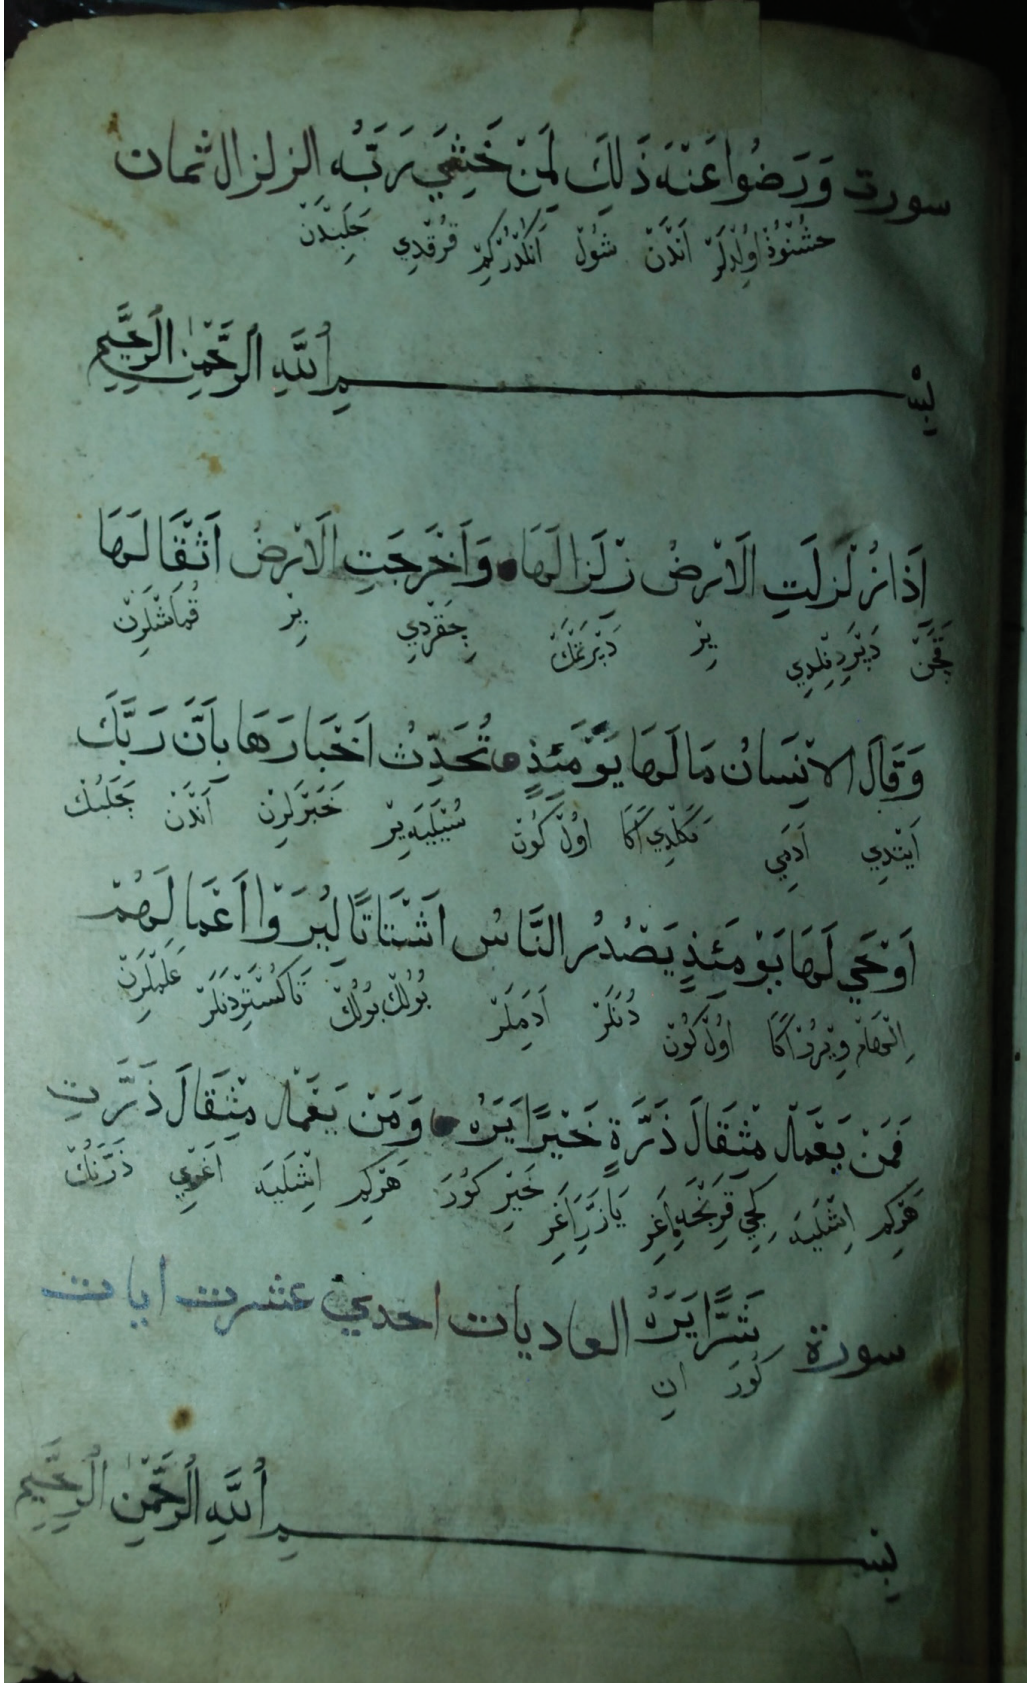 سورت وَرَضُوا عَنْهُ ذَلِكَ لِمَنْ خَشِيَ رَبَّهُ الزلزال ثمان
حشْنُوذْ اُولْدِلَرْ اَنْدَنْ شُولْ قُرْقْدِي چَلَبِنْدَنْ
بِسْمِ اللَّهِ الرَّحْمَنِ الرَّحِيمِ
اِذَا زُلْزِلَتِ الْاَرْضُ زِلْزَالَهَا وَاَخْرَجَتِ الْاَرْضُ اَثْقَالَهَا
قَچَنْ دَپْرَدِنْلدِي يِرْ دَپْرَنْمَكْ چِقَرْدِي يِرْ قُمَاشْلَرِنْ
وَقَالَ الْاِنْسَانُ مَا لَهَا يَوْمَئِذٍ تُحَدِّثُ اَخْبَارَهَا بِاَنَّ رَبَّكَ
اَيِتْدِي اَدَمِي نَكَلْدِي اَكَا اُولْ كُونْ سُيْلَيَه يِرْ خَبَرْلَرِنْ اَنْدَنْ چَلَبُكْ
اَوْحَي لَهَا يَوْمَئِذٍ يَصْدُرُ النَّاسُ اَشْتَاتًا لِيُرَوْا اَعْمَالَهُمْ
اِلْهَامْ وِيْرُرْ اَكَا اُولْ كُونْ دُنَلَرْ اَدَمِلَرْ بُولُكْ بُولُكْ تَا كُسْتَرِدِنَلَرْ عَمَلَرِنْ
فَمَنْ يَعْمَلْ مِثْقَالَ ذَرَّةٍ خَيْرًا يَرَهُ وَمَنْ يَعْمَلْ مِثْقَالَ ذَرَّتِ
هَرْكِمِ اِشْلَيَه كِچِي قَرِنْجَه اَغِرِ يَا ذَرَّ اَغِرِ خَيْرِ كُورَ هَرْكِمِ اِشْلَيَه اَغْرِي ذَرَّنُكْ
سورة شَرًّا يَرَهُ العاديات احدي عشرت ايات
كُورَ انِ
بِسْمِ اللَّهِ الرَّحْمَنِ الرَّحِيمِ